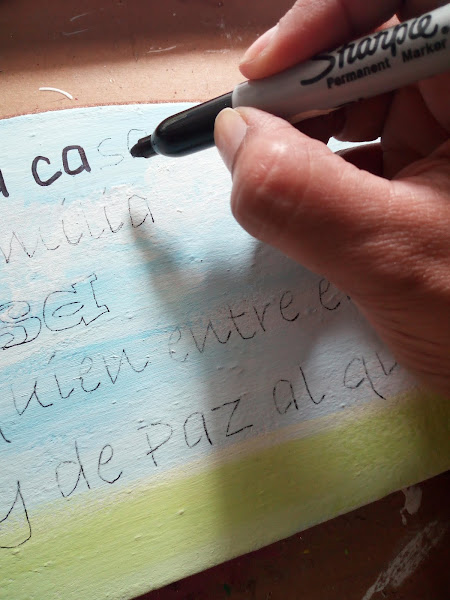 Sharpie.
Permanent Marker
a cas
milia
quien entre e
y de Paz al qu